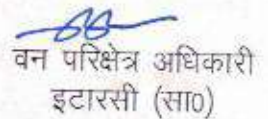 वन परिक्षेत्र अधिकारी
इटारसी (सा0)